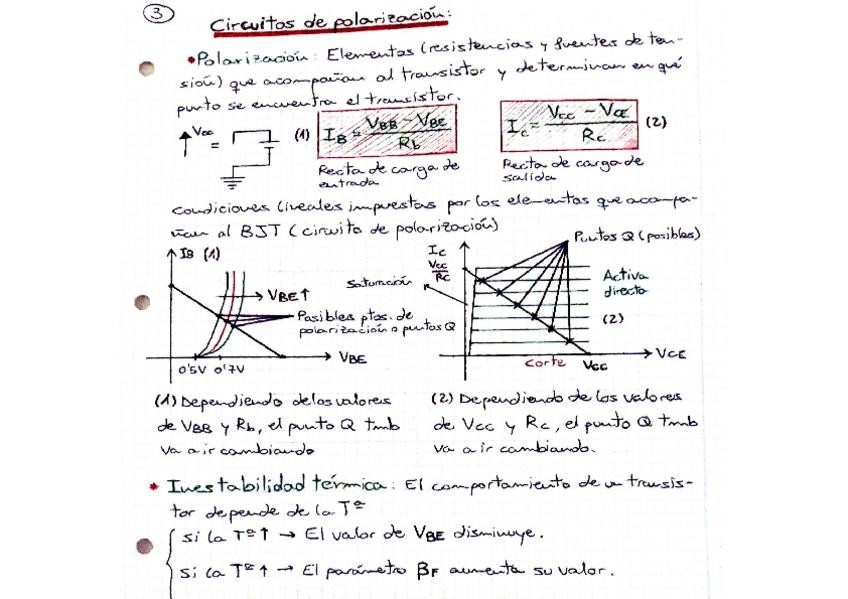 3
Circuitos de polarización:
• Polarización: Elementos (resistencias y fuentes de ten-
sión) que acompañan al transistor y determinan en qué
punto se encuentra el transistor.
Vcc =
(1) IB = VBB - VBE / Rb
Ic = Vcc - VCE / Rc (2)
Recta de carga de
entrada
Recta de carga de
salida
Condiciones lineales impuestas por los elementos que acompa-
ñan al BJT (circuito de polarización)
IB (1)
VBE↑
Posibles ptos. de
polarización o puntos Q
VBE
0'5V 0'7V
Ic
Vcc/Rc
Saturación
Puntos Q (posibles)
Activa
directo
(2)
Corte
Vcc
VCE
(1) Dependiendo de los valores
de VBB y Rb, el punto Q tmb
va a ir cambiando
(2) Dependiendo de los valores
de Vcc y Rc, el punto Q tmb
va a ir cambiando.
* Inestabilidad térmica: El comportamiento de un transis-
tor depende de la Tª
si la Tª ↑ → El valor de VBE disminuye.
si la Tª ↑ → El parámetro βF aumenta su valor.